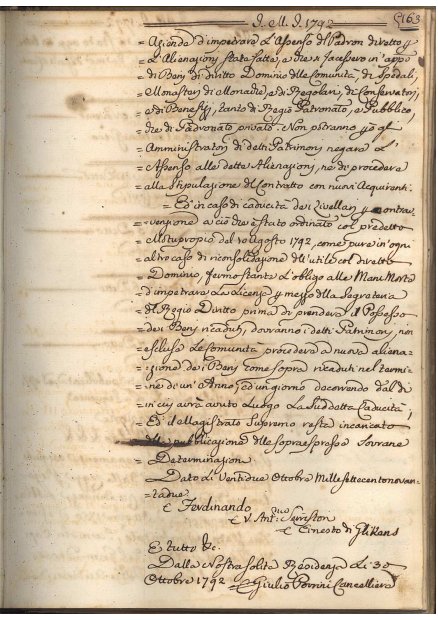 I. M. I. 1792
163
= Azienda d'impetrare L'Assenso del Padron diretto p
= L'Alienazioni state fatte, e che si facessero in app.o
= di Beni di diritto Dominio delle Comunità, di Spedali,
= Monasterj di Monache, e di Regolari, di Conservatorj,
= e di Benefizj, tanto di Regio Patronato, e Pubblico,
= che di Padronato privato: Non potranno p.ò gl'
= Amministratori di detti Patrimonj negare L'
= Assenso alle dette Alienazioni, nè di procedere
= alla Stipulazione del Contratto con nuovi Acquirenti.
= Ed in caso di caducità dei Livellari p contra
= venzione a ciò che è stato ordinato col predetto
= Motuproprio del 10 Agosto 1792, come pure in ogni
= altro caso di riconsolidazione dell'utile col diretto
= Dominio, fermo stante L'obligo alle Mani Morte
= d'impetrare La Licenza p mezzo della Segreteria
= del Regio Diritto prima di prendere il Possesso
= dei Beni ricaduti, dovranno i detti Patrimonj, non
= escluse Le Comunità procedere a nuova aliena-
= zione dei Beni come sopra ricaduti nel termi-
= ne di un' Anno, ed un giorno decorrendo dal dì
= in cui avrà avuto Luogo La Suddetta Caducità,
= Ed il Magistrato Supremo resta incaricato
della pubblicazione delle sopraespresse Sovrane
= Determinazioni
= Dato Li Ventidue Ottobre Mille settecentonovan-
= tadue
= Ferdinando
= V. Ant.o Serristori
= Ernesto di Gilkens
E tutto &c.
Dalla Nostra Solita Residenza Li 30
Ottobre 1792 = Giulio Porrini Cancelliere